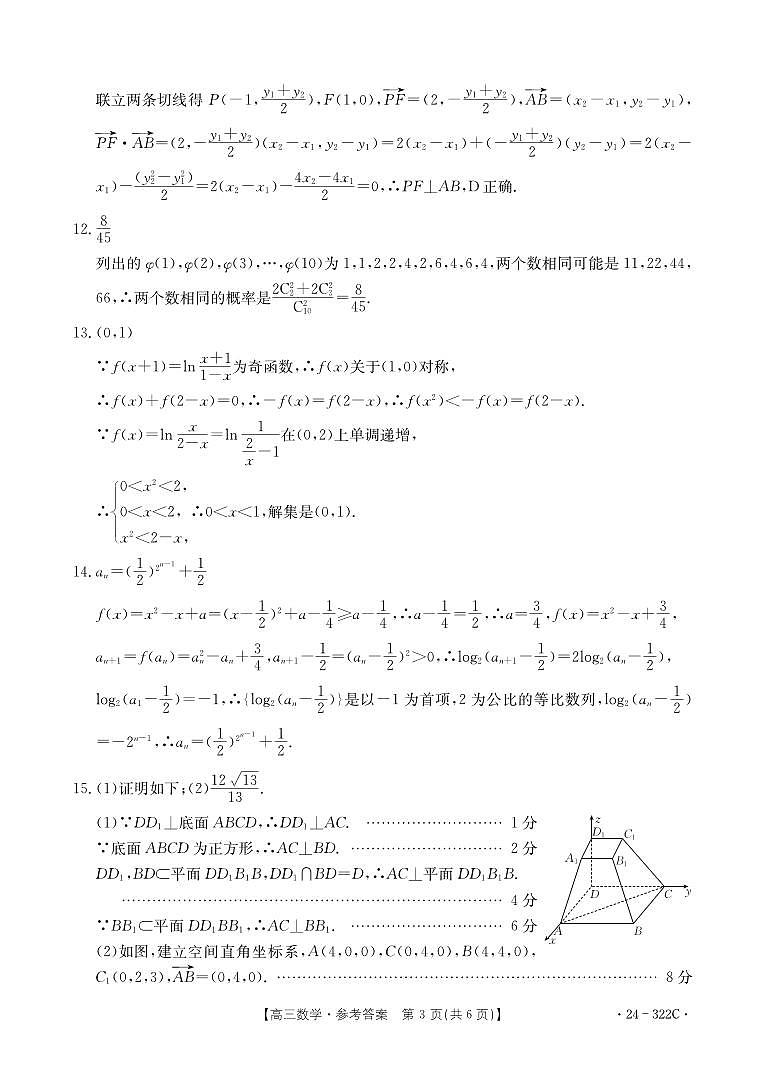 联立两条切线得 P(-1,\frac{y_1+y_2}{2}),F(1,0),\overrightarrow{PF}=(2,-\frac{y_1+y_2}{2}),\overrightarrow{AB}=(x_2-x_1,y_2-y_1),
\overrightarrow{PF}·\overrightarrow{AB}=(2,-\frac{y_1+y_2}{2})(x_2-x_1,y_2-y_1)=2(x_2-x_1)+(-\frac{y_1+y_2}{2})(y_2-y_1)=2(x_2-
x_1)-\frac{(y_2^2-y_1^2)}{2}=2(x_2-x_1)-\frac{4x_2-4x_1}{2}=0,∴PF⊥AB,D正确.
12.\frac{8}{45}
列出的 φ(1),φ(2),φ(3),…,φ(10)为 1,1,2,2,4,2,6,4,6,4,两个数相同可能是 11,22,44,
66,∴两个数相同的概率是\frac{2C_2^2+2C_3^2}{C_{10}^2}=\frac{8}{45}.
13.(0,1)
∵f(x+1)=ln\frac{x+1}{1-x}为奇函数,∴f(x)关于(1,0)对称,
∴f(x)+f(2-x)=0,∴-f(x)=f(2-x),∴f(x^2)<-f(x)=f(2-x).
∵f(x)=ln\frac{x}{2-x}=ln\frac{1}{\frac{2}{x}-1}在(0,2)上单调递增,
∴{0<x^2<2,
0<x<2, ∴0<x<1,解集是(0,1).
x^2<2-x,
14.a_n=(\frac{1}{2})^{2^{n-1}}+\frac{1}{2}
f(x)=x^2-x+a=(x-\frac{1}{2})^2+a-\frac{1}{4}≥a-\frac{1}{4},∴a-\frac{1}{4}=\frac{1}{2},∴a=\frac{3}{4},f(x)=x^2-x+\frac{3}{4},
a_{n+1}=f(a_n)=a_n^2-a_n+\frac{3}{4},a_{n+1}-\frac{1}{2}=(a_n-\frac{1}{2})^2>0,∴log_2(a_{n+1}-\frac{1}{2})=2log_2(a_n-\frac{1}{2}),
log_2(a_1-\frac{1}{2})=-1,∴{log_2(a_n-\frac{1}{2})}是以-1 为首项,2 为公比的等比数列,log_2(a_n-\frac{1}{2})
=-2^{n-1},∴a_n=(\frac{1}{2})^{2^{n-1}}+\frac{1}{2}.
15.(1)证明如下;(2)\frac{12\sqrt{13}}{13}.
(1)∵DD_1⊥底面 ABCD,∴DD_1⊥AC. ……………………… 1 分
∵底面 ABCD 为正方形,∴AC⊥BD. ……………………… 2 分
DD_1,BD⊂平面 DD_1B_1B,DD_1∩BD=D,∴AC⊥平面 DD_1B_1B.
……………………………………………………………… 4 分
∵BB_1⊂平面 DD_1BB_1,∴AC⊥BB_1. ……………………… 6 分
z
D_1
C_1
A_1
B_1
D
C
y
A
B
x
(2)如图,建立空间直角坐标系,A(4,0,0),C(0,4,0),B(4,4,0),
C_1(0,2,3),\overrightarrow{AB}=(0,4,0). ……………………………………………………………… 8 分
【高三数学·参考答案 第 3 页(共 6 页)】
·24-322C·